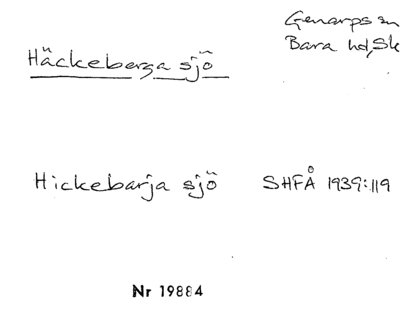 Genarps sn
Häckeberga sjö
Bara hd, Sk
Hickebarja sjö SHFÅ 1939:119
Nr 19884